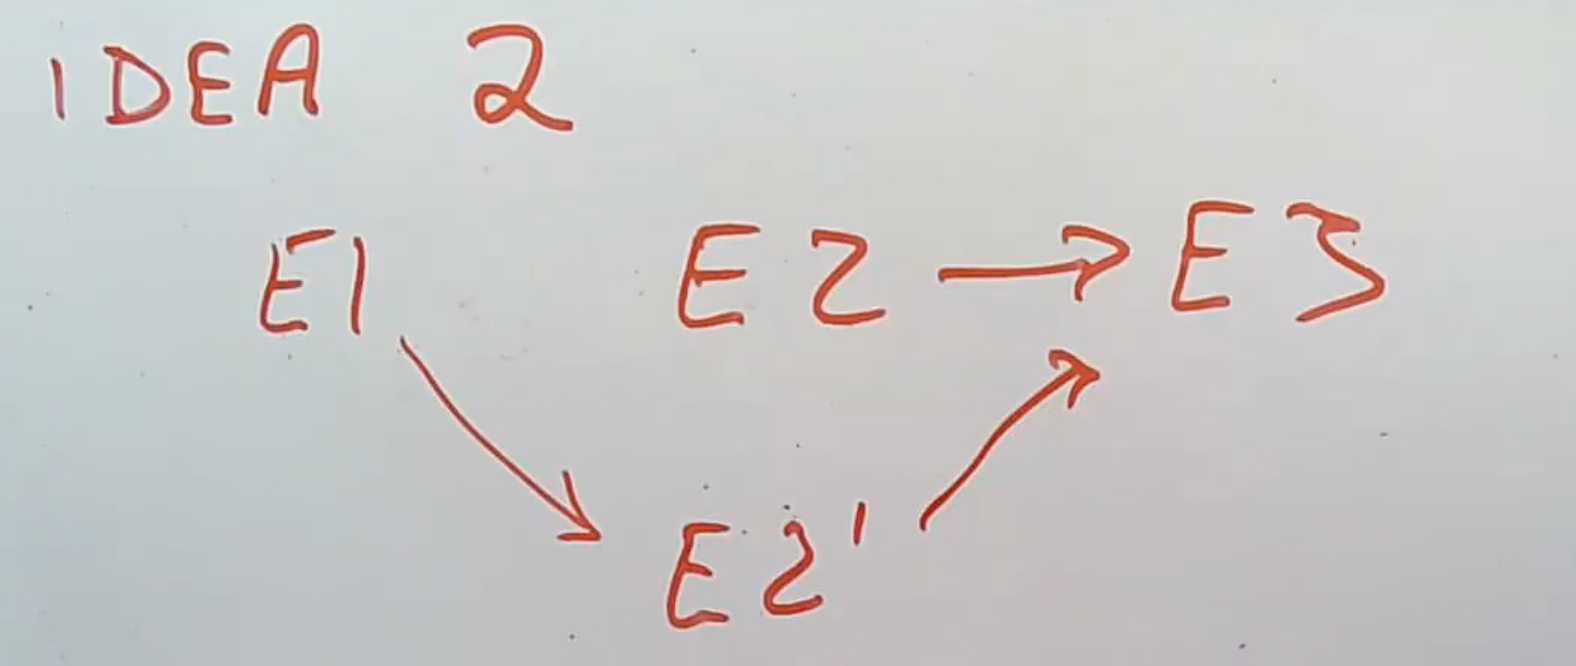 IDEA 2
E1 E2 → E3
E2'